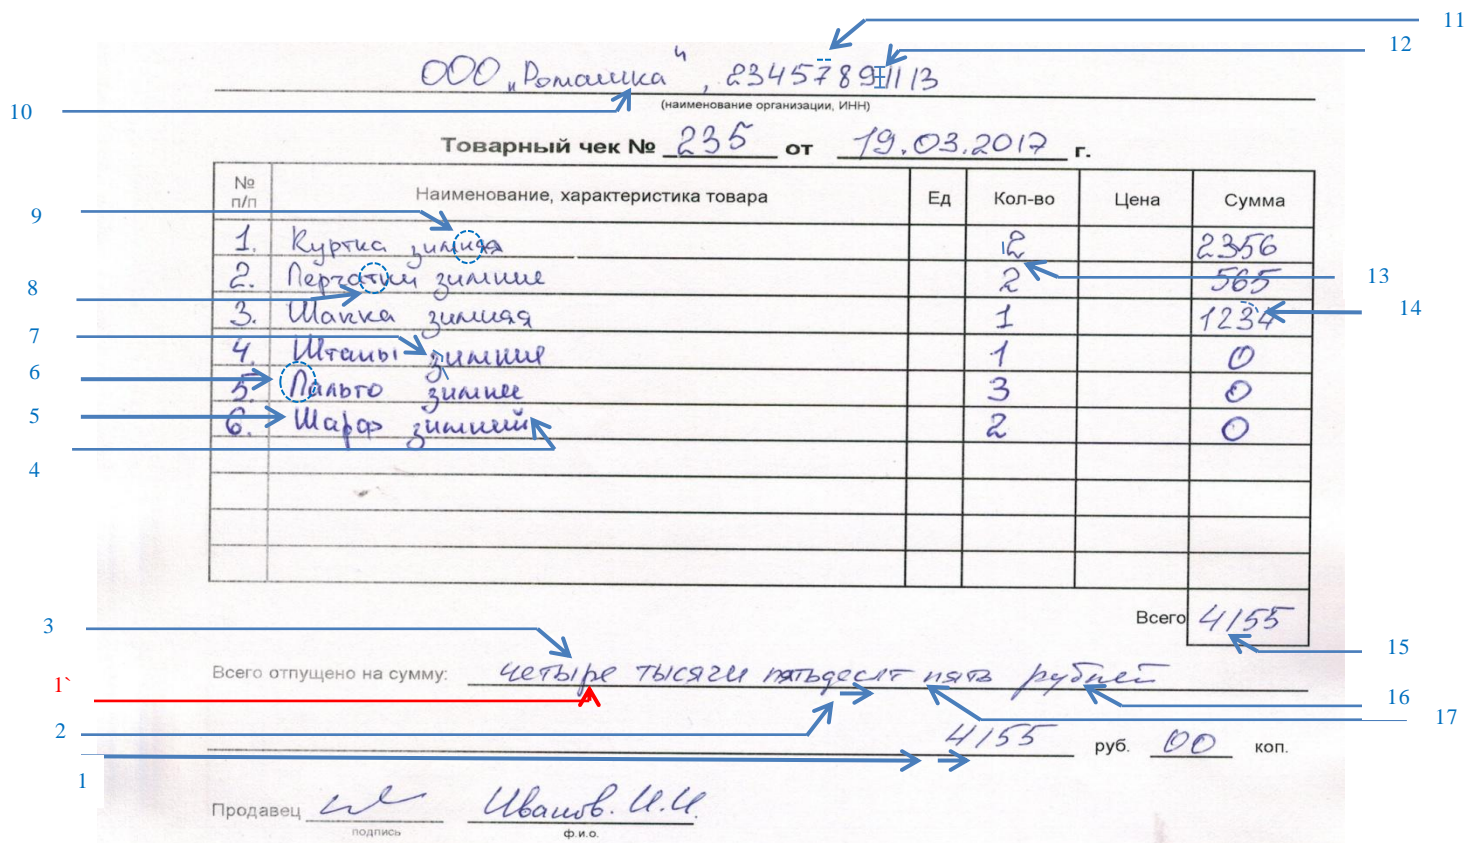 11
12
ООО „Ромашка“, 2345789111113
10
(наименование организации, ИНН)
Товарный чек № 235 от 19.03.2017 г.
№ п/п Наименование, характеристика товара Ед Кол-во Цена Сумма
9
1. Куртка зимняя 2 2356
2. Перчатки зимние 2 565
13
8
3. Шапка зимняя 1 1234
14
7
4. Штаны зимние 1 0
6
5. Пальто зимнее 3 0
5
6. Шарф зимний 2 0
4
Всего 4155
3
15
Всего отпущено на сумму: четыре тысячи пятьдесят пять рублей
1`
16
17
2
4155 руб. 00 коп.
1
Продавец Иванов. И.И.
подпись ф.и.о.